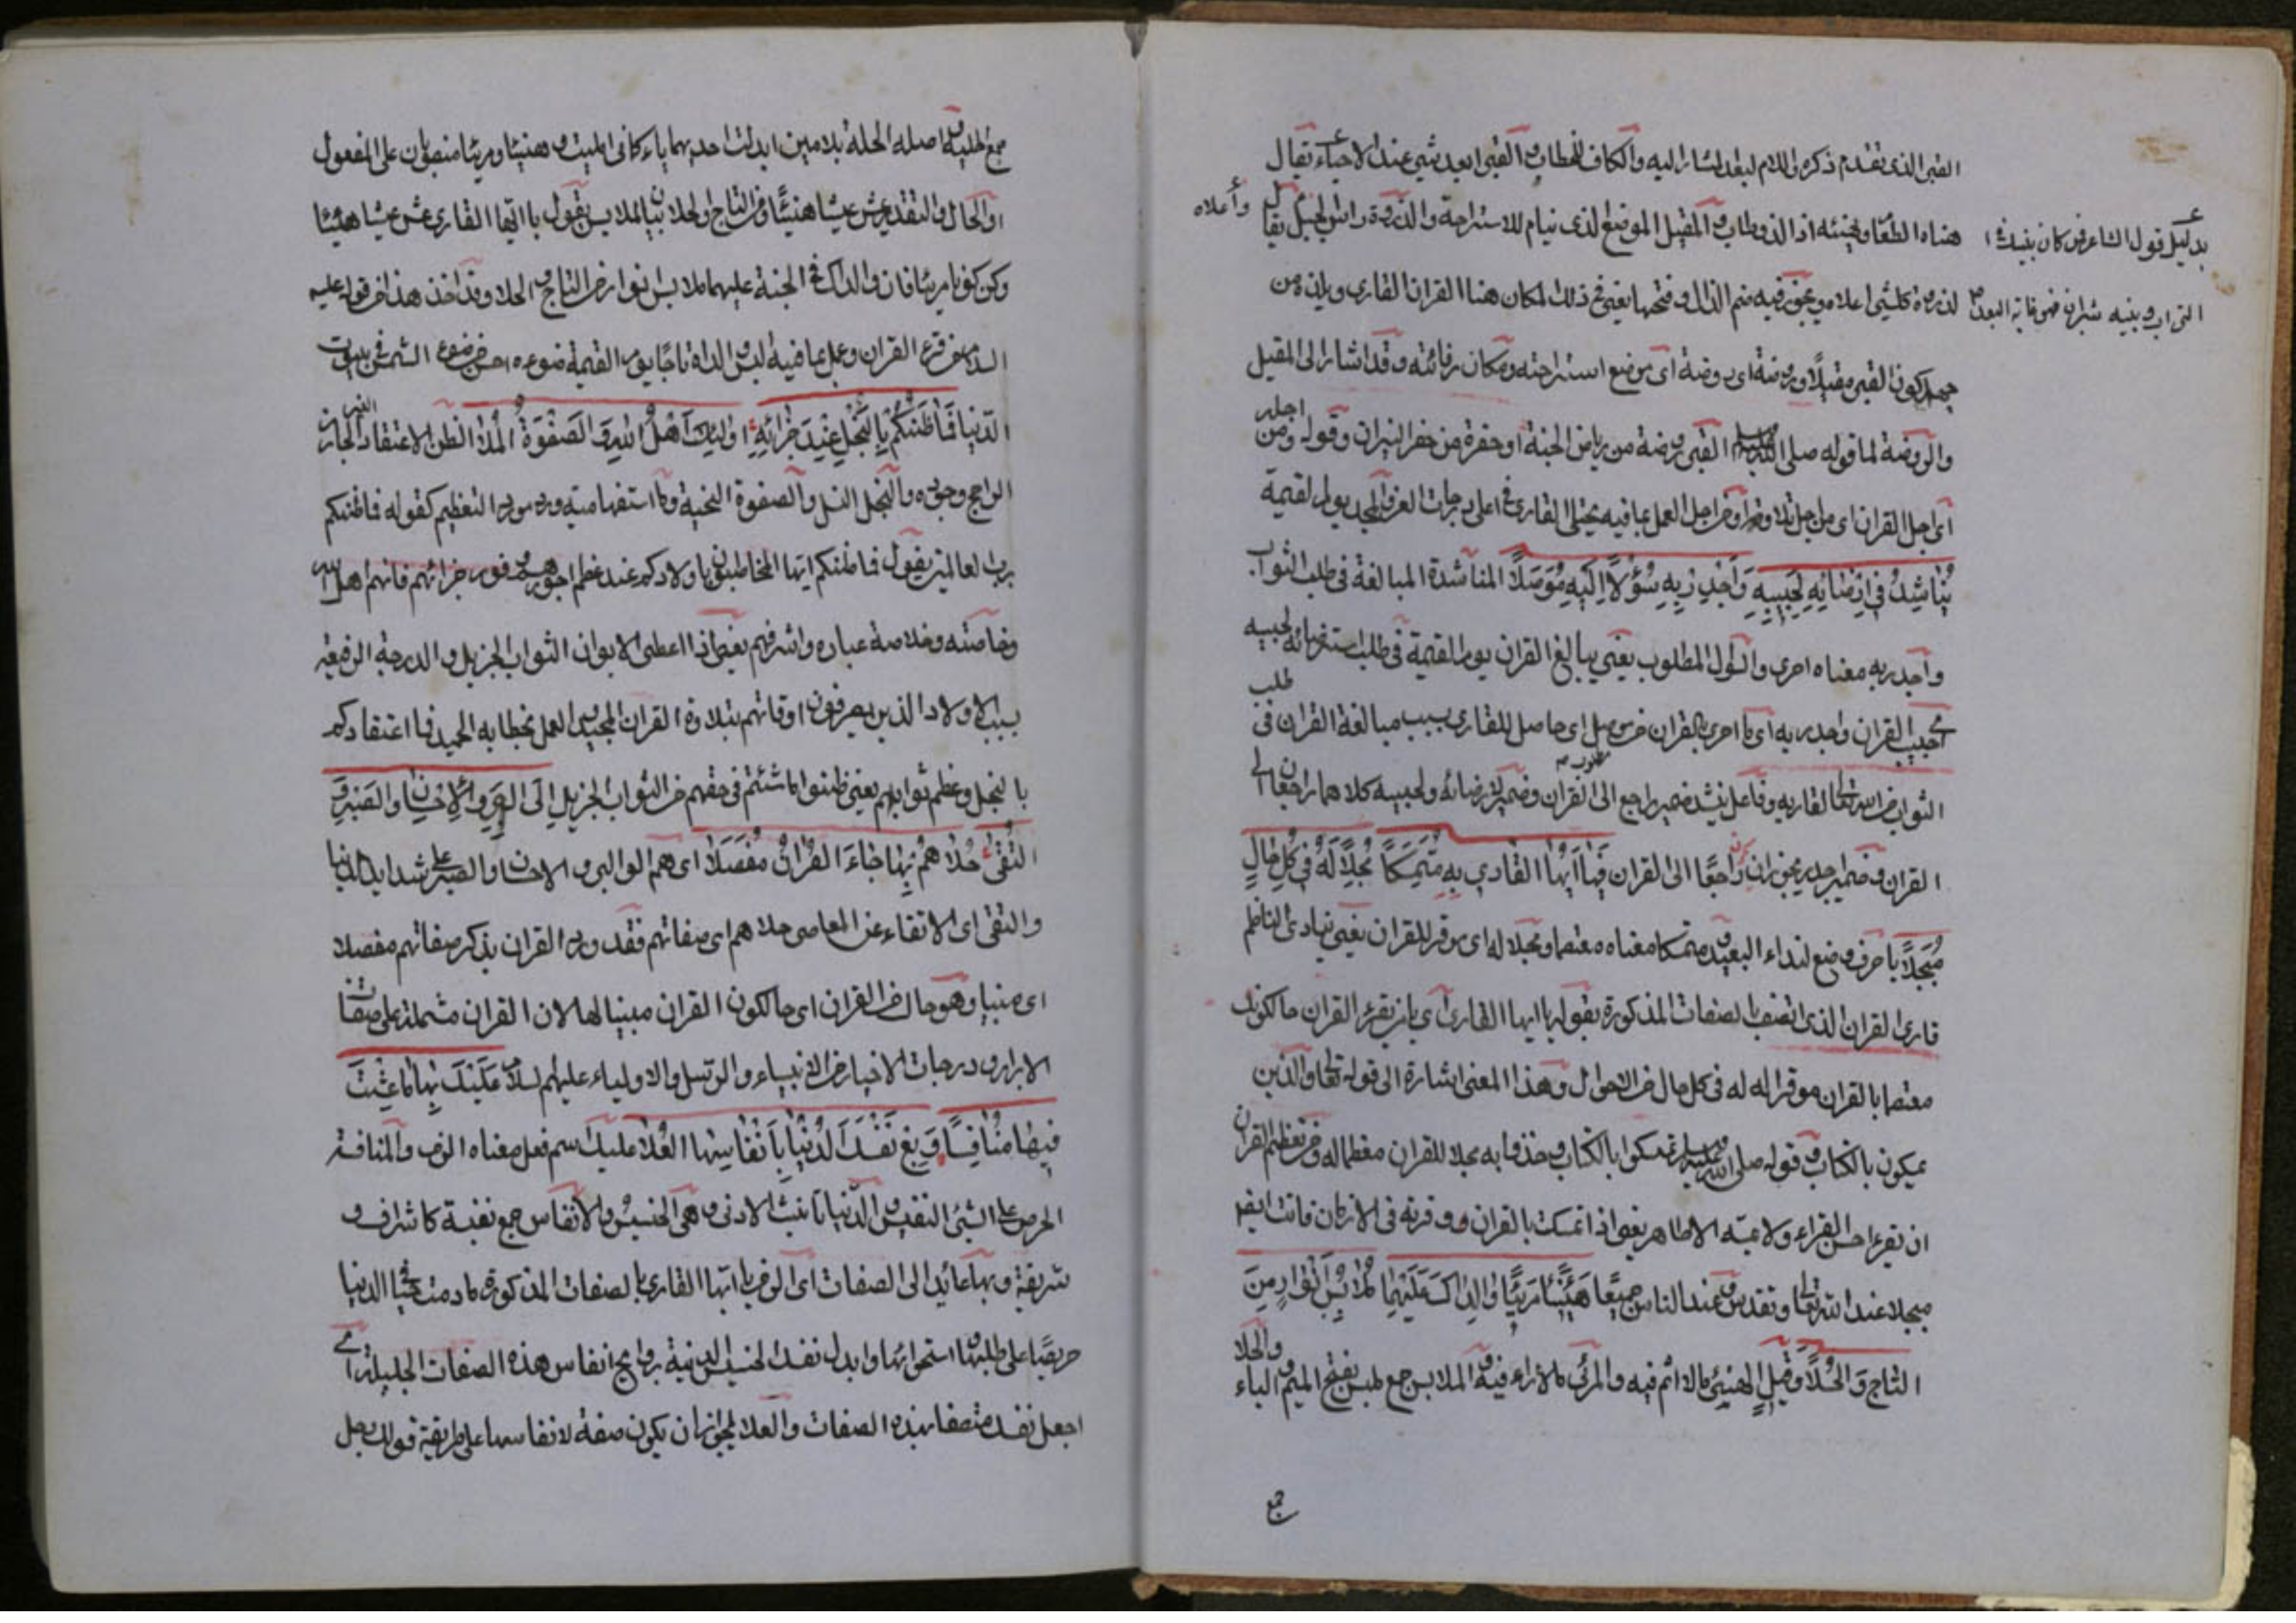 القبر الذى تقدم ذكره واللام لبعد المشار اليه والكاف للخطاب و القبر ابعد شئ عند الاحياء يقال
بدليل قول الشاعر من كان بينك
التراب وبينه شبران فهو بغاية البعد
هناه الطعام يهنئه اذا لذ وطاب و المقيل الموضع الذى ينام للاستراحة والذروة راس الجبل يقال
وأعلاه
لذروة كل شئ اعلاه ويجوز فيه ضم الذال وفتحها يعنى فى ذلك المكان هنا القران القارى ويلزم من
كون القبر مقيلا وروضة اى روضة اى موضع استراحته ومكان وقد اشار الى المقيل
والروضة لما قوله صلى الله عليه وسلم القبر روضة من رياض الجنة او حفرة من حفر النيران وقوله ومن اجله
اى اجل القران اى من اجل تلاوته او من اجل العمل بما فيه يجتلى القارى فى اعلى درجات العز والمجد يوم القيمة
يُنَاشِدُ فِى اِرْضَائِهِ لِحَبِيبِهِ وَاَجْدِرْ بِهِ سُؤْلًا اِلَيْهِ مُوَصَّلًا المناشدة المبالغة فى طلب الثواب
واجدر به معناه احرى والسؤل المطلوب يعنى يبالغ القران يوم القيمة فى طلب استرضائه لحبيبه
اى حبيب القران واجدر به اى ما احرى بالقران من سؤل اى حاصل للقارى بسبب مبالغة القران فى طلب
الثواب من الله تعالى لقاريه وفاعل ينشد ضمير راجع الى القران وضمير لارضائه ولحبيبه كلاهما راجعان الى
القران وضمير به يجوز ان يكون راجعًا الى القران فَيَا اَيُّهَا القَارِى بِهِ مُتَمَسِّكًا مُجِلًّا لَهُ فِى كُلِّ حَالٍ
مُبَجِّلًا يا حرف وضع لنداء البعيد و متمسكا معناه معتصما ومجلا له اى موقر للقران يعنى ينادى الناظم
قارى القران الذى اتصف بالصفات المذكورة بقوله يا ايها القارى اى يا من يقرء القران حالكونك
معتصما بالقران موقرا له فى كل حال من الاحوال وهذا المعنى اشارة الى قوله تعالى والذين
يمسكون بالكتاب و قوله صلى الله عليه وسلم تمسكوا بالكتاب وخذوا به مجلا للقران معظما له ومن تعظيم القران
ان تقرء احسن القراء ولا يمسه الا طاهر يعنى اذا تمسكت بالقران ووقرته فى الازمان فانت ايضا
مبجلا عند الله تعالى وعند الناس جميعًا هَنِيئًا مَرِيئًا وَالِدَاكَ عَلَيْهِمَا مَلَابِسُ اَنْوَارٍ مِنَ
التاج وَالحُلَا قيل الهنئ ما لا اثم فيه والمرئ مالا داء فيه و الملابس جمع ملبس بفتح الميم و الباء والحلا
جمع
جمع الحلية و اصله الحلة بلامين ابدلت احديهما ياء كما فى امليت و هنيئا ومريئا منصوبان على المفعول
او الحال والتقدير عش عيشا هنيئًا و من التاج والحلا بيان الملابس يقول يا ايها القارى عش عيشا هنيئا
وكن كونا مريئا فان والداك فى الجنة عليهما ملابس انوار من التاج و الحلا وقد اخذ هذا من قوله عليه
السلام من قرء القران وعمل بما فيه البس والداه تاجا يوم القيمة ضوءه احسن من ضوء الشمس فى بيوت
الدنيا فَمَا ظَنُّكُمْ بِالنَّجْلِ عِنْدَ جَزَائِهِ اُولٰئِكَ اَهْلُ اللهِ وَالصَفْوَةُ المَلَا الظن الاعتقاد الغير الجازم
الراجح وجوده والنجل النسل والصفوة النخبة وما استفهامية ورد مورد التعظيم كقوله فما ظنكم
برب العالمين يقول فما ظنكم ايها المخاطبون باولادكم عند عظم اجورهم و وفور جزائهم فانهم اهل الله
وخاصته وخلاصة عباده واشرفهم يعنى اذا اعطى الابوان الثواب الجزيل و الدرجة الرفيعة
بسبب الاولاد الذين يصرفون اوقاتهم بتلاوة القران المجيد و العمل بخطابه الحميد فما اعتقادكم
بالنجل وعظم ثوابهم يعنى ظنوا ما شئتم فى حقهم من الثواب الجزيل اُولِى البِرِّ وَالاِحْسَانِ وَالصَّبْرِ وَ
التُّقَىٰ حُلَاهُمْ بِهَا جَاءَ القُرْانُ مُفَصَّلًا اى هم اولو البر و الاحسان والصبر على شدايد الدنيا
والتقى اى الاتقاء عن المعاصى حلاهم اى صفاتهم فقد ورد القران بذكر صفاتهم مفصلا
اى مبينا وهو حال من القران اى حالكون القران مبينا لها لان القران مشتملة على صفات
الابرار و درجات الاخيار من الانبياء والرسل والاولياء عليهم السلام عَلَيْكَ بِهَا مَا عِشْتَ
فِيهَا مُنَافِسًا وَبِعْ نَفْسَكَ الدُّنْيَا بِاَنْفَاسِهَا العُلَا عليك اسم فعل معناه الزم و المنافسة
الحرص على الشئ النفيس و الدنيا تانيث الادنى و هى الخسيس والانفاس جمع نفيسة كاشراف و
شريفة و بها عائد الى الصفات اى الزم يا ايها القارى بالصفات المذكورة ما دمت حيا فى الدنيا
حريصًا على طلبها و استحرائها وابدل نفسك الخسيس الدنية بروايح انفاس هذه الصفات الجليلة اى
اجعل نفسك متصفا بهذه الصفات و العلا يجوز ان يكون صفة لانفاسها على طريقة قولك رجل